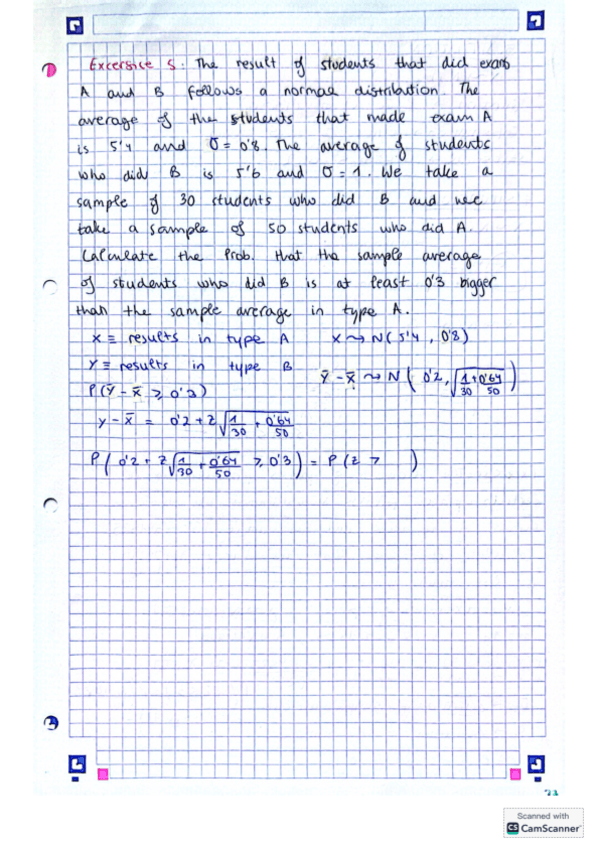 Excersice 5: The result of students that did exam
A and B follows a normal distribution. The
average of the students that made exam A
is 5'4 and σ = 0'8. The average of students
who did B is 5'6 and σ = 1. We take a
sample of 30 students who did B and we
take a sample of 50 students who did A.
Calculate the Prob. that the sample average
of students who did B is at least 0'3 bigger
than the sample average in type A.
X ≡ results in type A X ~> N(5'4, 0'8)
Y ≡ results in type B
Ȳ - X̄ ~> N(0'2, √(1/30 + 0'64/50))
P(Ȳ - X̄ ≥ 0'3)
Y - X̄ = 0'2 + Z√(1/30 + 0'64/50)
P(0'2 + Z√(1/30 + 0'64/50) ≥ 0'3) = P(Z > )
Scanned with
CS CamScanner